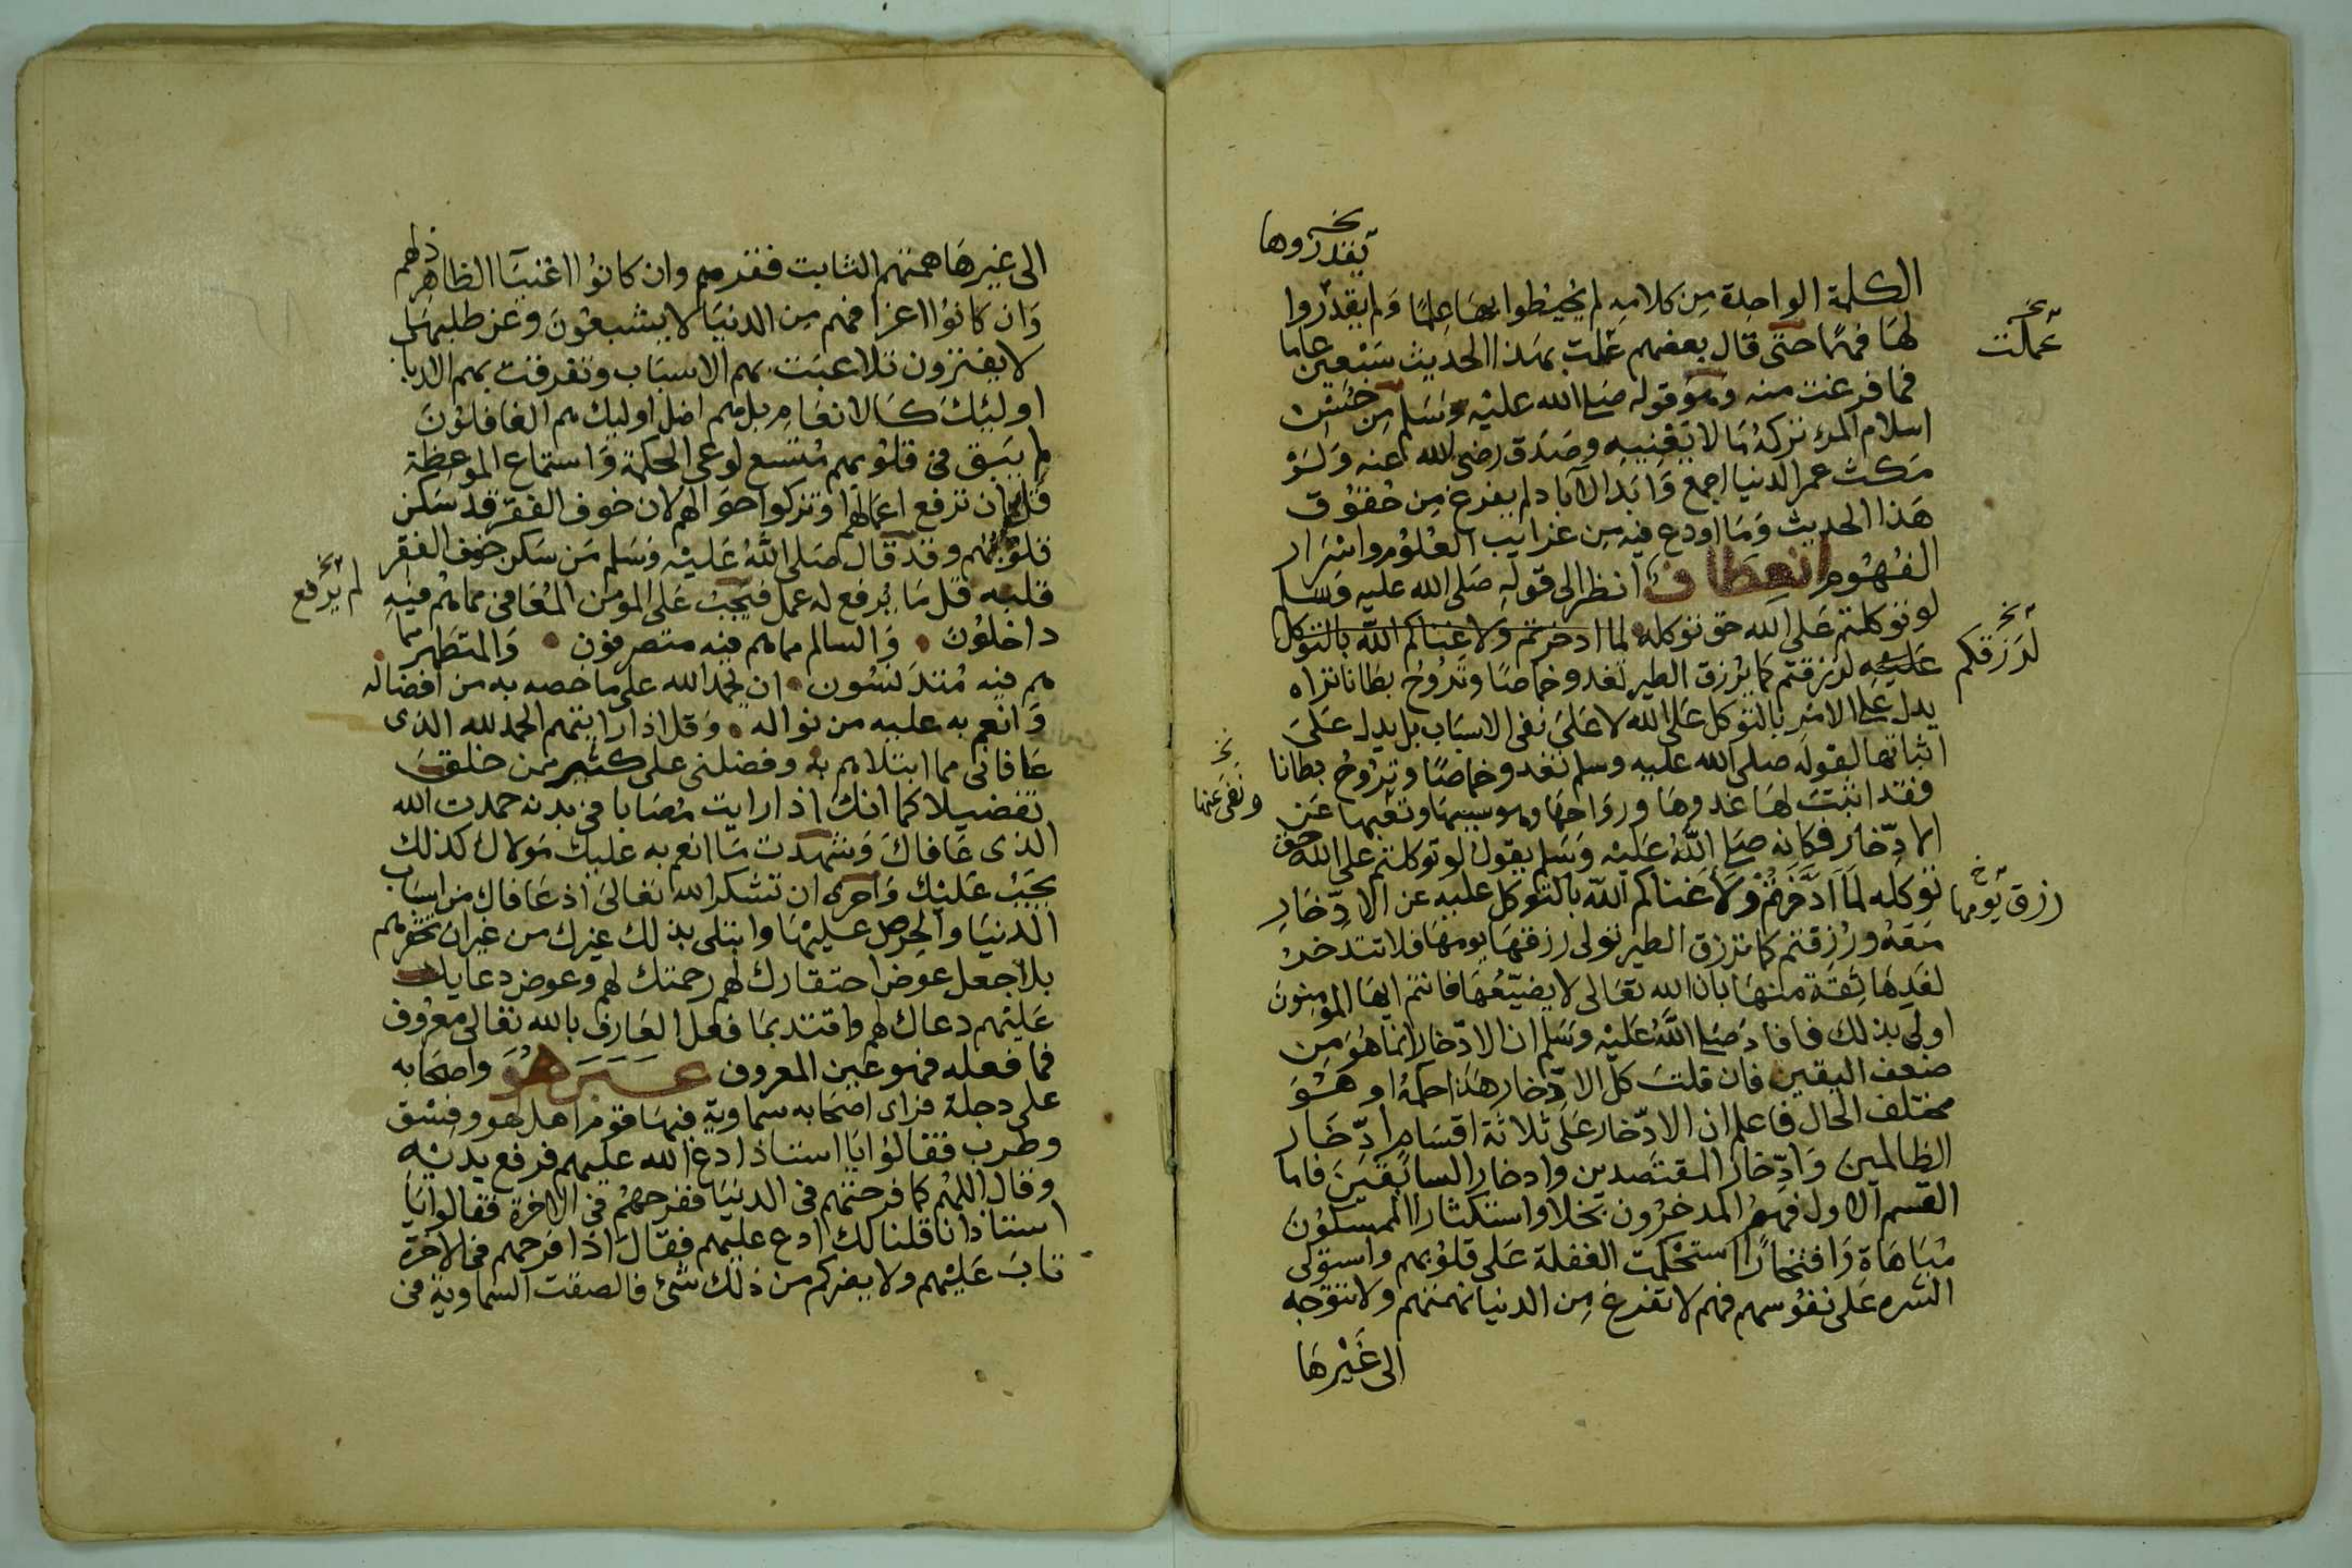 يقدروها
الكلمة الواحدة من كلامه لم يحيطوا بها علما ولم يقدروا
لها فهما حتى قال بعضهم عملت بهذا الحديث سبعين عاما
عملت
فما فرغت منه وهو قوله صلى الله عليه وسلم من حسن
اسلام المرء تركه ما لا يعنيه وصدق رضى الله عنه ولو
مكث عمر الدنيا اجمع وابد الآباد لم يفرغ من حقوق
هذا الحديث وما اودع فيه من غرايب العلوم واسرار
الفهوم انعطاف انظر الى قوله صلى الله عليه وسلم
لو توكلتم على الله حق توكله لما ادخرتم ولاغناكم الله بالتوكل
عليه لرزقتم كما يرزق الطير تغدو خماصا وتروح بطانا تراه
لرزقكم
يدل على الامر بالتوكل على الله لا على نفى الاسباب بل يدل على
اثباتها لقوله صلى الله عليه وسلم تغدو خماصا وتروح بطانا
فقد اثبت لها غدوها ورواحها وهو سببها وتعبها عن
ونفى عنها
الادّخار فكانه صلى الله عليه وسلم يقول لو توكلتم على الله حق
توكله لما ادّخرتم ولأغناكم الله بالتوكل عليه عن الادّخار
رزق يومها
معه ورزقتم كما ترزق الطير تولى رزقها يومها فلا تدخر
لغدها ثقة منها بان الله تعالى لا يضيّعها فانتم ايها المومنون
اولى بذلك فافاد صلى الله عليه وسلم ان الادّخار انما هو من
ضعف اليقين فان قلت كل الادّخار هذا حكمه او هو
مختلف الحال فاعلم ان الادّخار على ثلاثة اقسام ادّخار
الظالمين وادّخار المقتصدين وادخار السابقين فاما
القسم الاول فهم المدخرون بخلا واستكثارا الممسكون
مباهاة وافتخارا استحكمت الغفلة على قلوبهم واستولى
الشره على نفوسهم فهم لا تفرغ من الدنيا نهمتهم ولا تتوجه
الى غيرها
الى غيرها همتهم الثابت فقرهم وان كانوا اغنيا الظاهر ذلهم
وان كانوا اعزا فهم من الدنيا لا يشبعون وعن طلبها
لا يفترون تلاعبت بهم الاسباب وتفرقت بهم الارباب
اوليك كالانعام بل هم اضل اوليك هم الغافلون
لم يبق فى قلوبهم متسع لوعى الحكمة واستماع الموعظة
فقل ان ترفع اعمالهم او تزكوا احوالهم لان خوف الفقر قد سكن
قلوبهم وقد قال صلى الله عليه وسلم من سكن خوف الفقر
قلبه قل ما يرفع له عمل فيجب على المومن المعافى مما هم فيه
لم يرفع
داخلون والسالم مما هم فيه متصرفون والمتطهر مما
هم فيه متدنسون ان يحمد الله على ما خصه به من افضاله
وانعم به عليه من نواله وقل اذا رايتهم الحمد لله الذى
عافانى مما ابتلاهم به وفضلنى على كثير ممن خلق
تفضيلا كما انك اذا رايت مصابا فى بدنه حمدت الله
الذى عافاك وشهدت ما انعم به عليك مولاك كذلك
يجب عليك واحرى ان تشكر الله تعالى اذ عافاك من اسباب
الدنيا والحرص عليها وابتلى بذلك غيرك من غير ان تحقرهم
بل اجعل عوض احتقارك لهم رحمتك لهم وعوض دعايك
عليهم دعاك لهم واقتد بما فعل العارف بالله تعالى معروف
فما فعله فهو عين المعروف عبر هو واصحابه
على دجلة فراى اصحابه سماوية فيها قوم اهل لهو وفسق
وطرب فقالوا يا استاذ ادع الله عليهم فرفع يديه
وقال اللهم كما فرحتهم فى الدنيا ففرحهم فى الاخرة فقالوا يا
استاذ انا قلنا لك ادع عليهم فقال اذا فرحهم فى الآخرة
تاب عليهم ولا يضركم من ذلك شئ فالصقت السماوية فى